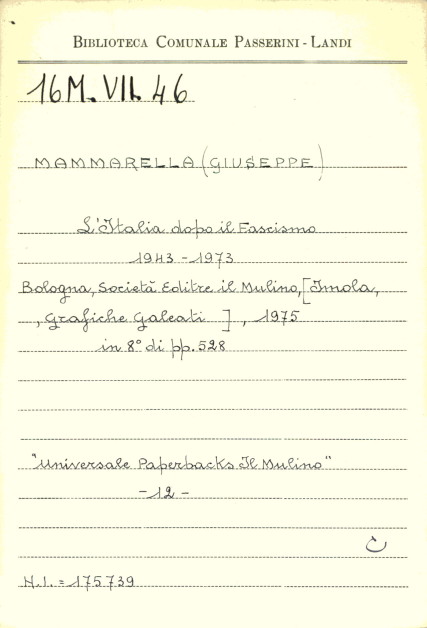 BIBLIOTECA COMUNALE PASSERINI - LANDI
16 M. VII. 46
MAMMARELLA (GIUSEPPE)
L'Italia dopo il Fascismo
1943 - 1973
Bologna, Società Editre il Mulino, [Imola,
, Grafiche Galeati ], 1975
in 8° di pp. 528
"Universale Paperbacks Il Mulino"
- 12 -
N.I. = 175739